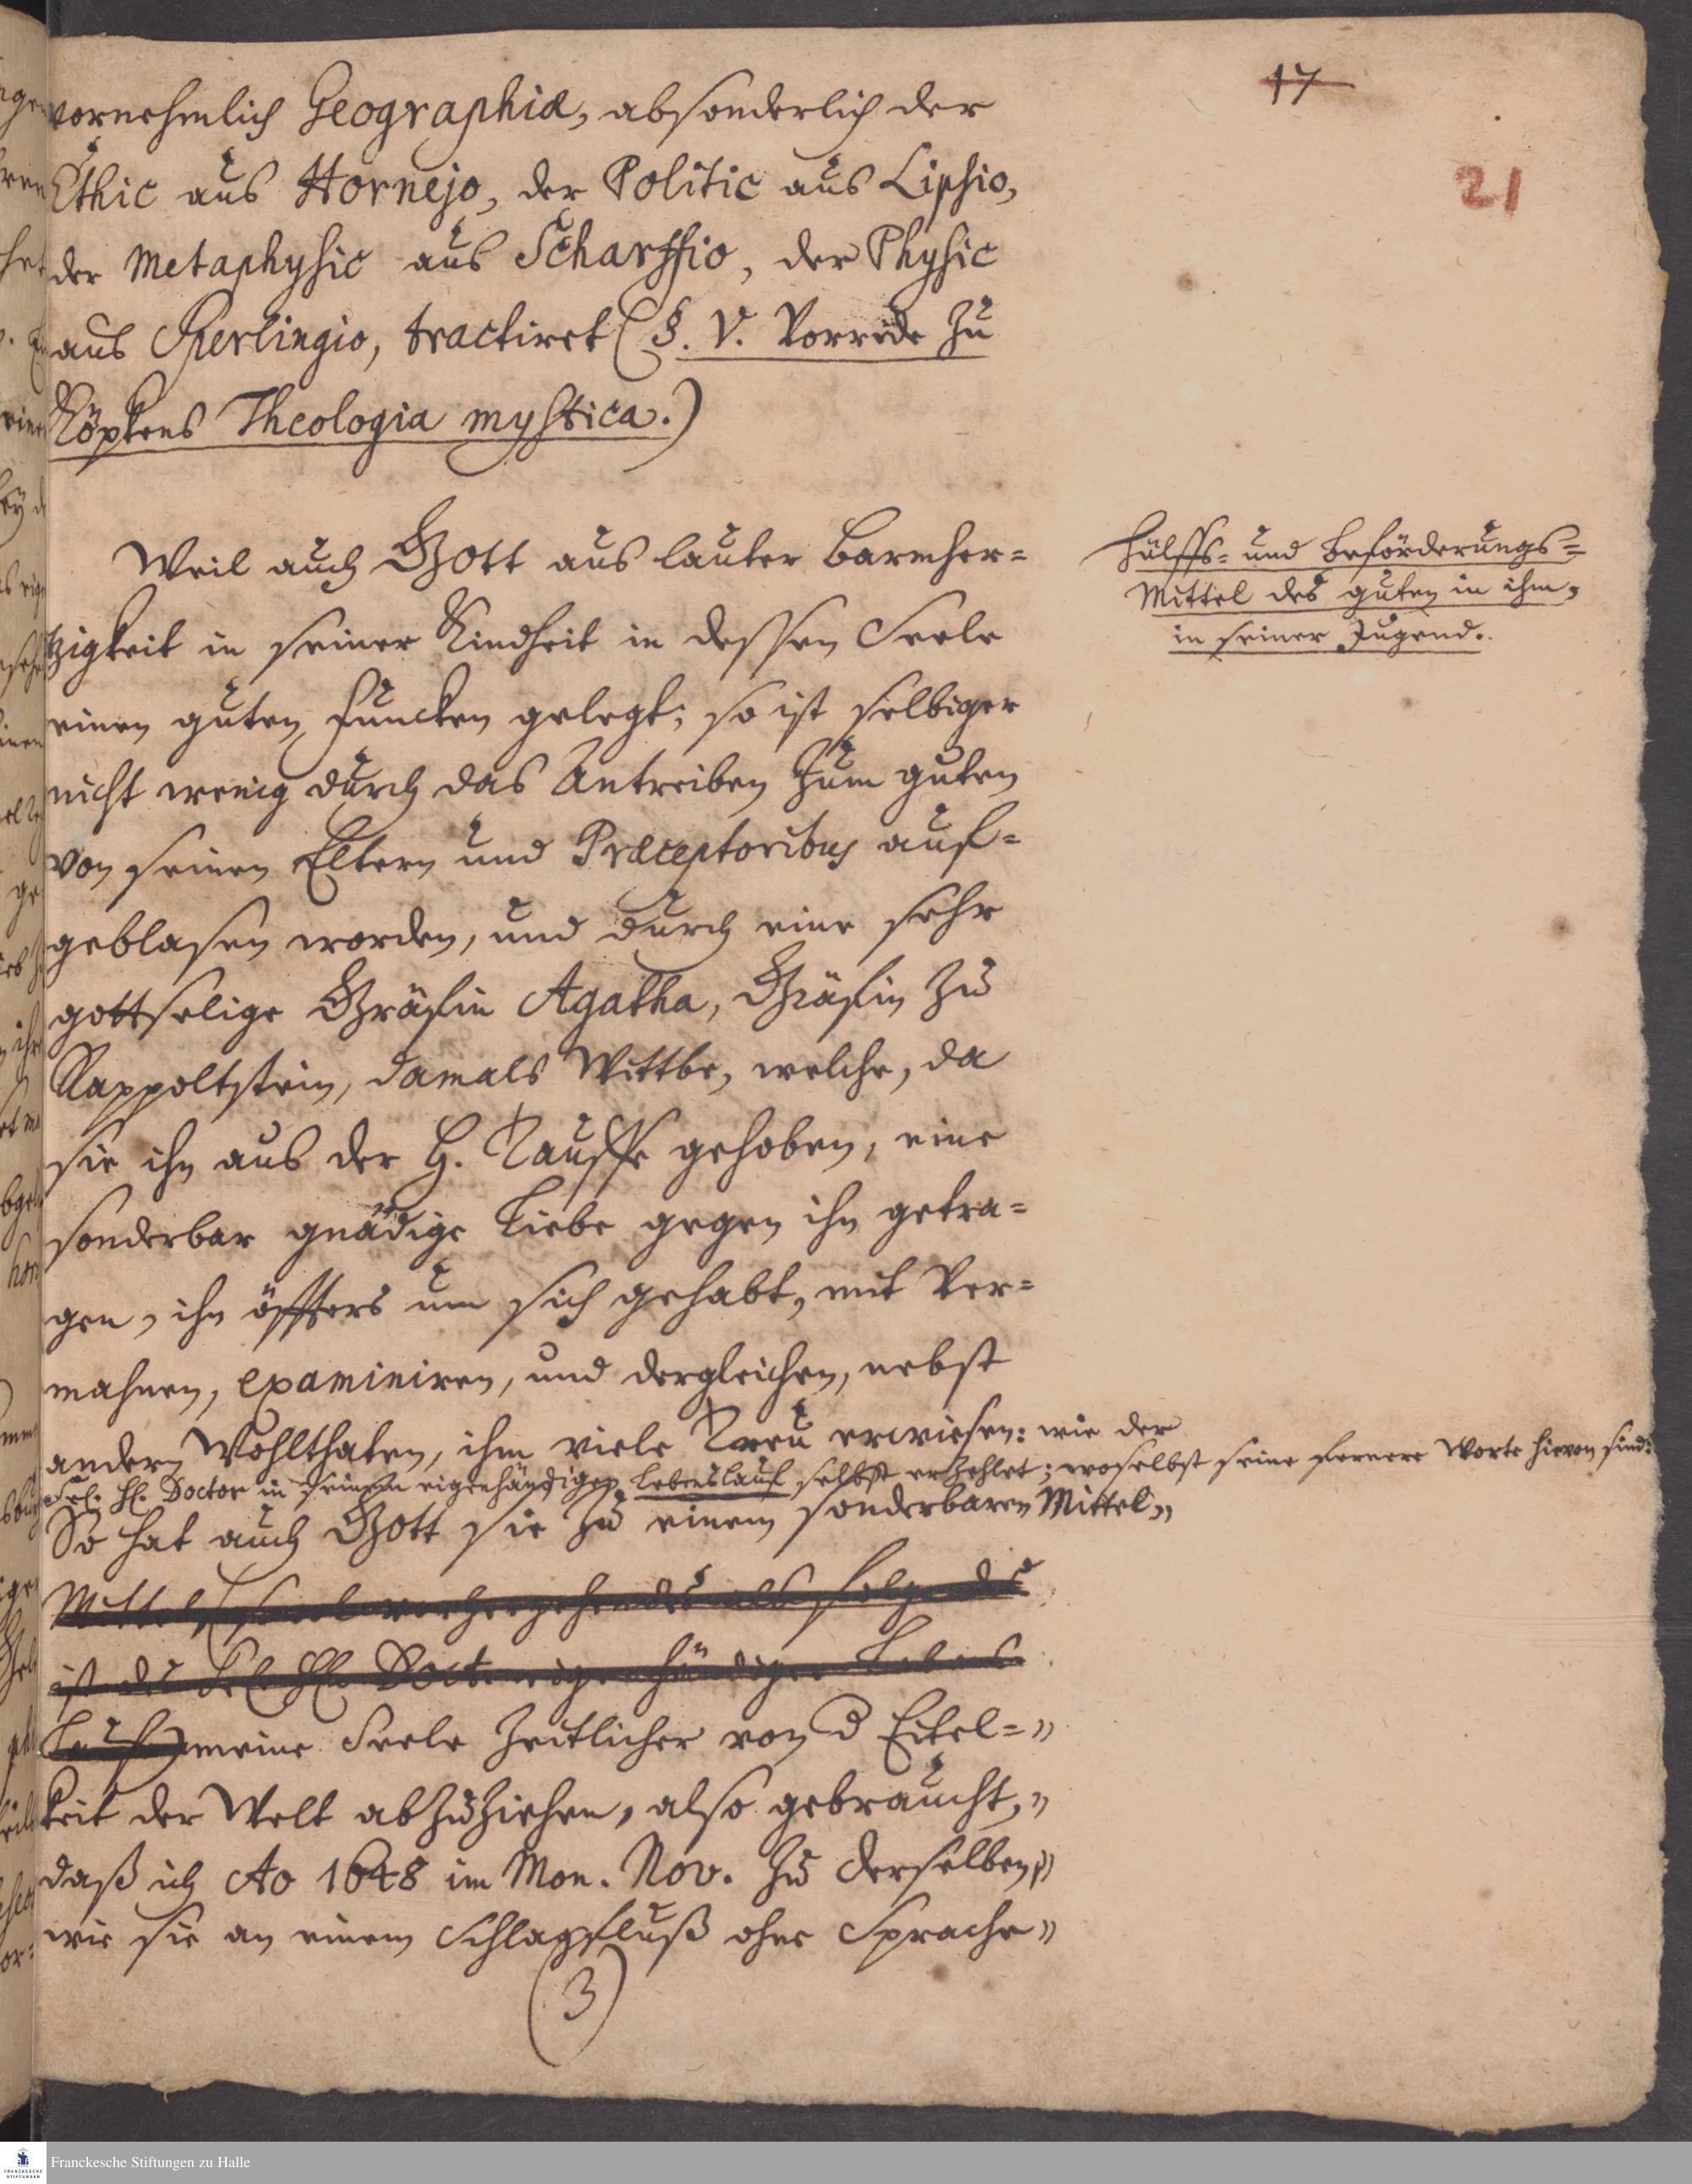 17
21
vornehmlich Geographiæ, absonderlich der
Ethic aus Hornejo, der Politic aus Lipsio,
der Metaphysic aus Scharffio, der Physic
aus Sperlingio, tractiret (§. V. Vorrede zu
Köpkens Theologia mystica.)
Hülffs- und Beförderungs-
Mittel des guten in ihm,
in seiner Jugend.
Weil auch Gott aus lauter Barmher-
tzigkeit in seiner Kindheit in dessen Seele
einen guten Funcken gelegt; so ist selbiger
nicht wenig durch das Antreiben zum guten
von seinen Eltern und Præceptoribus auf-
geblasen worden, und durch eine sehr
gottselige Gräfin Agatha, Gräfin zu
Rappoltstein, damals Wittbe, welche, da
sie ihn aus der H. Tauffe gehoben, eine
sonderbar gnädige Liebe gegen ihn getra-
gen, ihn öffters um sich gehabt, mit Ver-
mahnen, examiniren, und dergleichen, nebst
andern Wohlthaten, ihm viele Treu erwiesen: wie der
Sel. H. Doctor in seinem eigenhändigen Lebenslauf selbst erzehlet; woselbst seine fernere Worte hievon sind:
So hat auch Gott sie zu einem sonderbaren Mittel „
Mittel (sowol vorhergehendes als folgendes
ist des Sel. H. Doct. eigenhändiger Lebens
Lauf) meine Seele zeitlicher von d Eitel- „
keit der Welt abzuziehen, also gebraucht, „
daß ich Ao 1648 im Mon. Nov. zu derselben, „
wie sie an einem Schlagfluß ohne Sprache „
(3)
Franckesche Stiftungen zu Halle
FRANCKESCHE
STIFTUNGEN